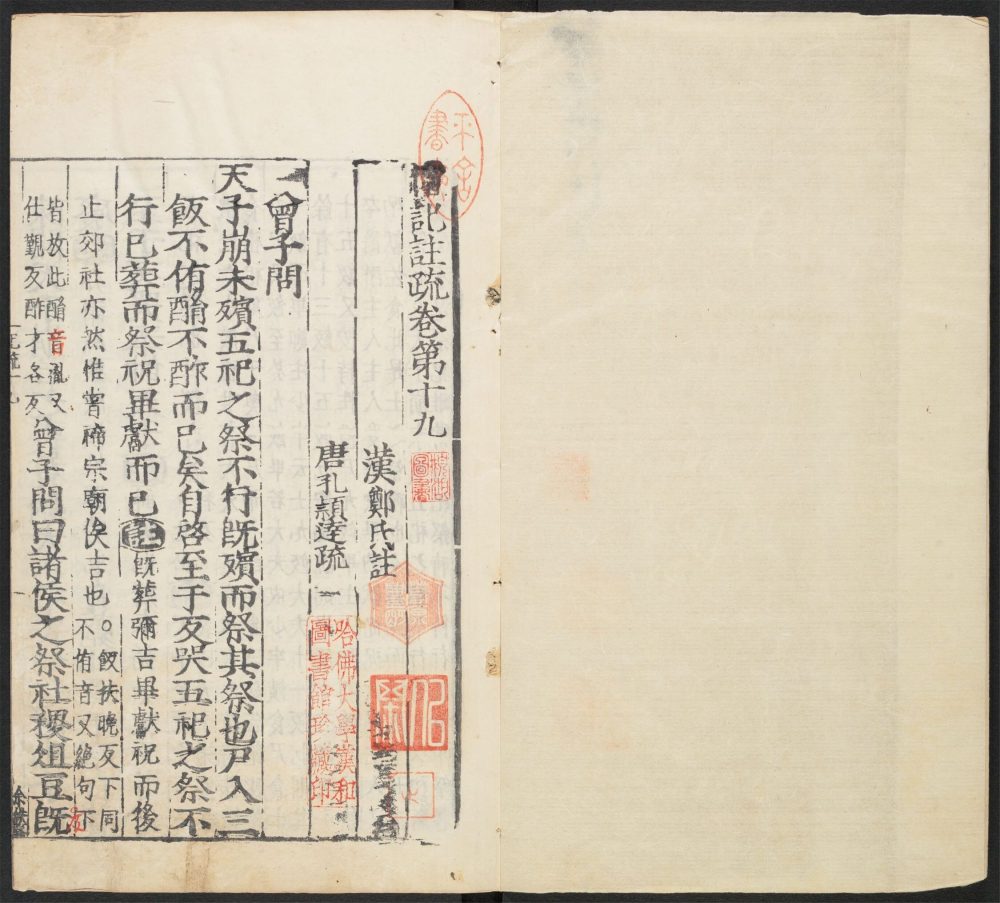 禮記註疏卷第十九
漢鄭氏註
唐孔穎達疏
曾子問
天子崩未殯五祀之祭不行既殯而祭其祭也尸入三
飯不侑酳不酢而已矣自啓至于反哭五祀之祭不
行已葬而祭祝畢獻而已註既葬彌吉畢獻祝而後
止郊社亦然惟嘗禘宗廟俟吉也○飯扶晚反下同
不侑音又絶句下
皆放此酳音胤又
仕覲反酢才各反
曾子問曰諸侯之祭社稷俎豆既
哈佛大學漢和
圖書館珍藏印